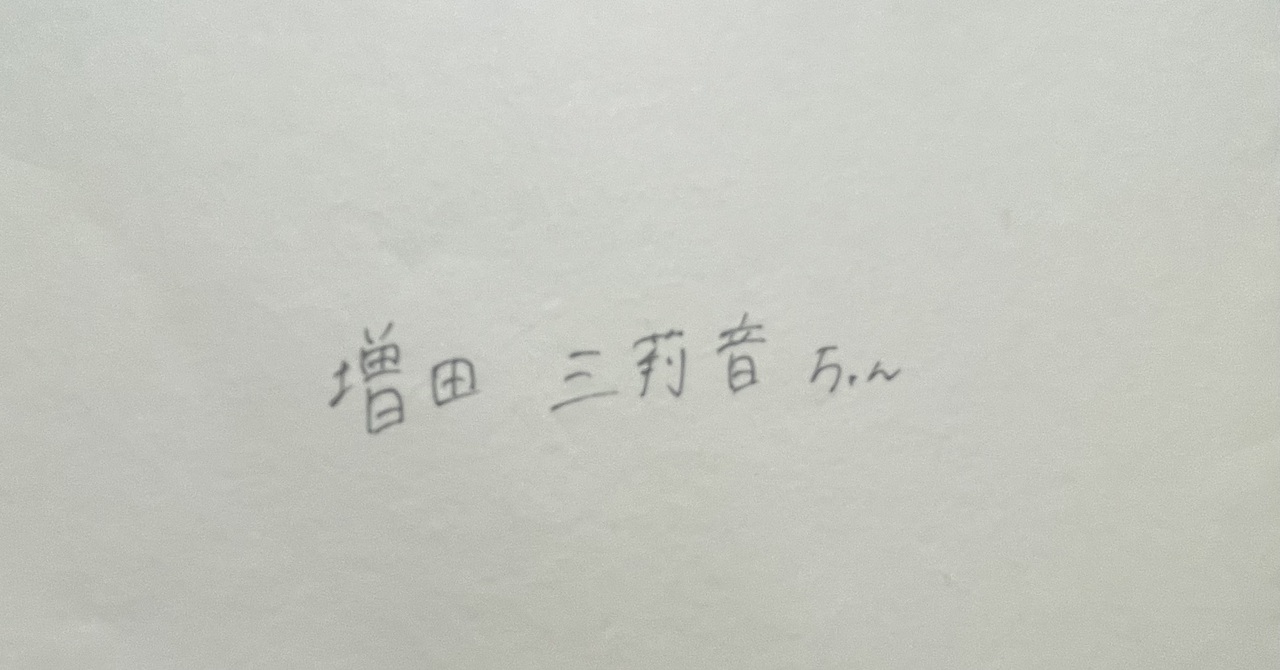 増田 三莉音 ちゃん